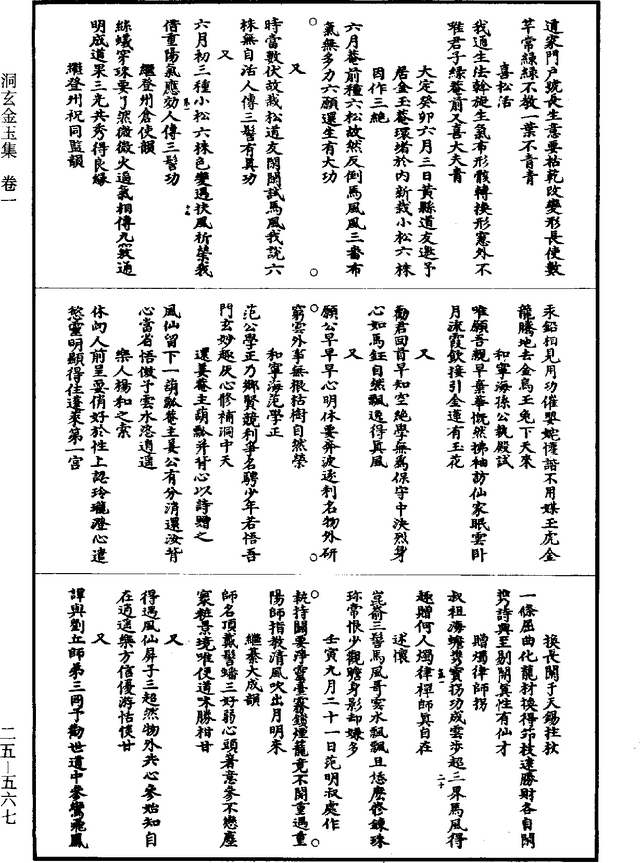 洞玄金玉集 卷一
道家門戶號長生意要枯乾改變形長使數
莖常綠綠不教一葉不青青
喜松活
我通生法幹旋生氣布形骸轉換形窓外不
唯君子綠菴前又喜大夫青
大定癸卯六月三日黃縣道友邀予
居金玉菴環堵於內新栽小松六株
因作三絕
六月菴前種六松故然反倒馬風風三番布
氣無多力六願還生有大功
又
時當數伏故栽松道友閑閑試馬風我說六
株無自活人傳三髻有真功
又
六月初三種小松六株色變遇扶風祈榮我
借重陽氣應効人傳三髻功
繼登州倉使韻
絲蟻穿珠要了然微微火逼氣相傳九竅通
明成道果三光共秀得良緣
繼登州祝同監韻
汞鉛相見用功催嬰姹懽諧不用媒玉虎金
龍騰地去金烏玉兔下天來
和寧海孫公執殿試
唯願吾親早棄華慨然拂袖訪仙家眠雲卧
月流霞飲接引金蓮有玉花
又
勸君回首早知空絕學無爲保守中決烈身
心如馬鈺自然飄逸得真風
又
願公早早早心明休要奔波逐利名物外研
窮雲外事無根枯樹自然榮
和寧海范學正
范公學正乃鄉賢競利爭名騁少年若悟吾
門玄妙趣灰心修補洞中天
還姜菴主葫瓢并背心以詩贈之
風仙留下一葫瓢菴主姜公有分消還汝背
心當省悟傚予雲水恣逍遥
樂人楊和之索
休向人前呈耍俏好於性上認玲瓏澄心遣
慾靈明顯得住蓬萊第一宮
換長閑子天錫拄杖
一條屈曲化龍材換得笻枝達勝財各自閑
攜詩興至別開真性有仙才
贈燭律師拐
叔祖海蟾攜寳拐功成雲步超三界馬風得
趣贈何人燭律禪師真自在
述懷
崑崳三髻馬風哥雲水飄飄且恁麽修鍊珠
珎常恨少觀瞻身影却嫌多
壬寅九月二十一日范明叔處作
執持關要淨靈臺霧鎖煙籠竟不開重遇重
陽師指教清風吹出月明來
繼綦大成韻
師名頂戴髻蟠三好弱心頭著意參不戀塵
寰粧景境唯使道味勝柑甘
又
得遇風仙屏子三超然物外共心參始知自
在逍遥樂方信優游恬淡甘
又
譚與劉丘師弟三同予勸世道中參鸞飛鳳
二五—五六七